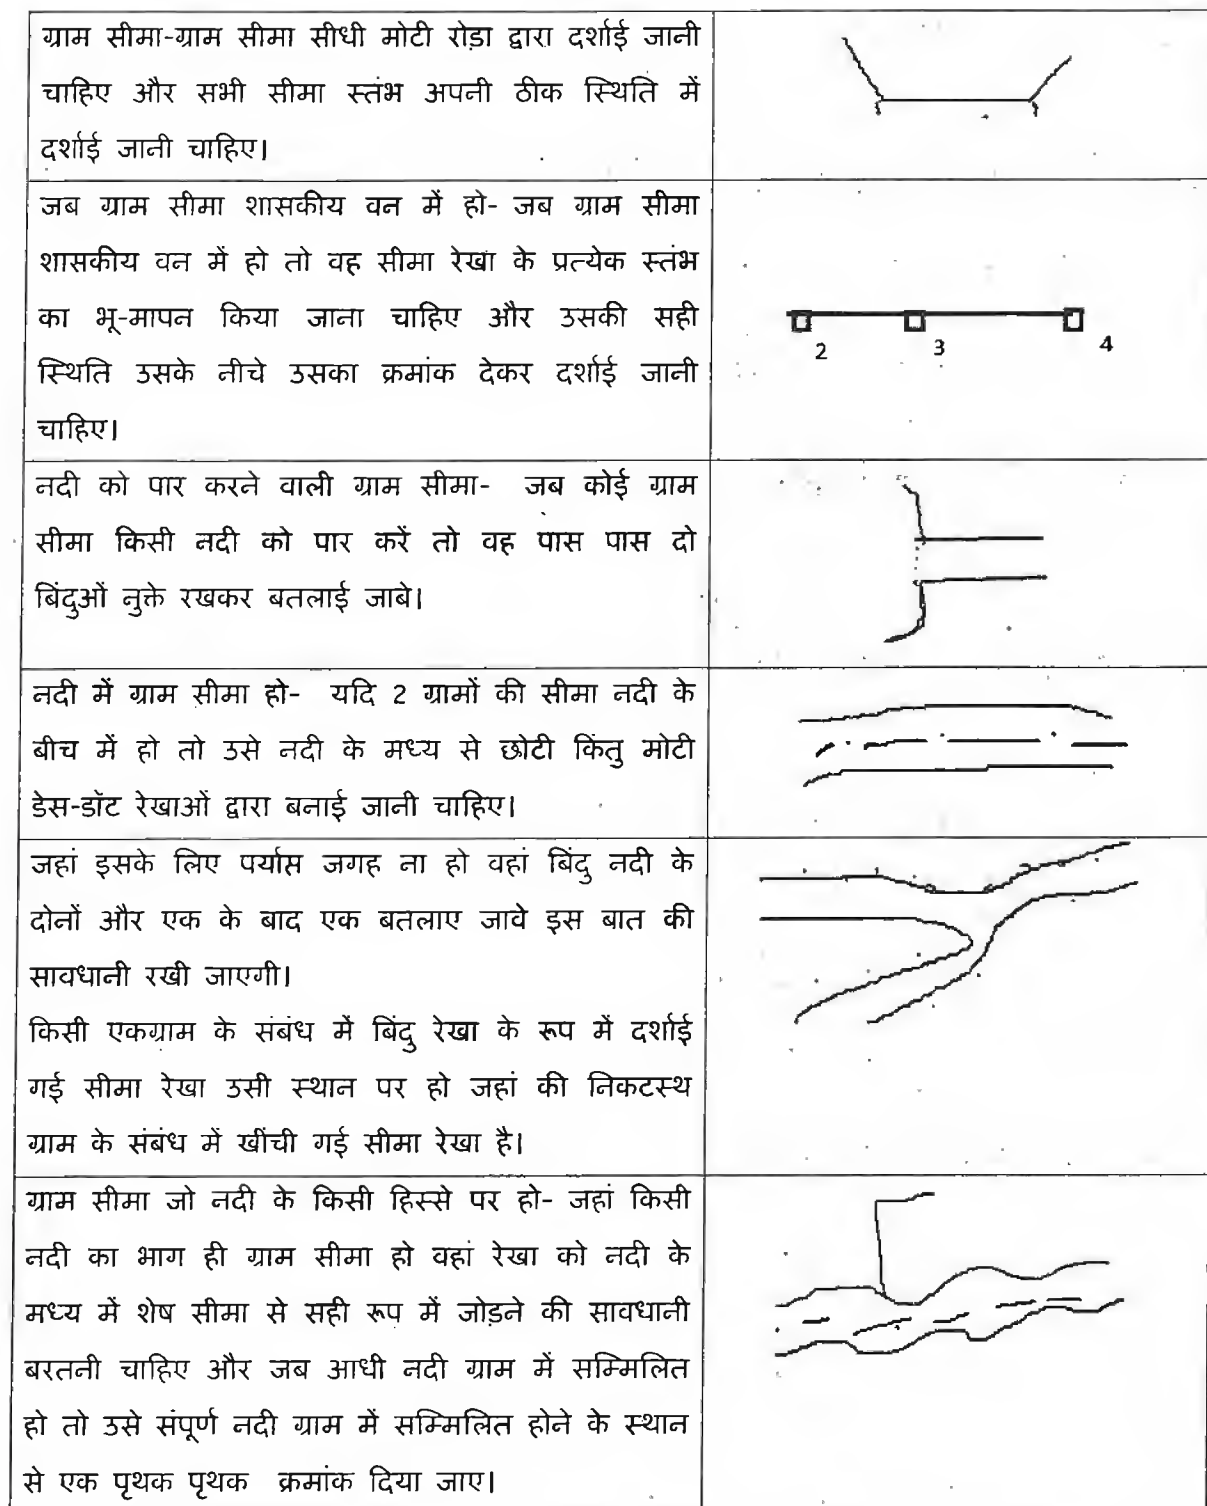 ग्राम सीमा-ग्राम सीमा सीधी मोटी रोड़ा द्वारा दर्शाई जानी
चाहिए और सभी सीमा स्तंभ अपनी ठीक स्थिति में
दर्शाई जानी चाहिए।
जब ग्राम सीमा शासकीय वन में हो- जब ग्राम सीमा
शासकीय वन में हो तो वह सीमा रेखा के प्रत्येक स्तंभ
का भू-मापन किया जाना चाहिए और उसकी सही
स्थिति उसके नीचे उसका क्रमांक देकर दर्शाई जानी
चाहिए।
2 3 4
नदी को पार करने वाली ग्राम सीमा- जब कोई ग्राम
सीमा किसी नदी को पार करें तो वह पास पास दो
बिंदुओं नुक्ते रखकर बतलाई जाबे।
नदी में ग्राम सीमा हो- यदि 2 ग्रामों की सीमा नदी के
बीच में हो तो उसे नदी के मध्य से छोटी किंतु मोटी
डेस-डॉट रेखाओं द्वारा बनाई जानी चाहिए।
जहां इसके लिए पर्याप्त जगह ना हो वहां बिंदु नदी के
दोनों और एक के बाद एक बतलाए जावे इस बात की
सावधानी रखी जाएगी।
किसी एकग्राम के संबंध में बिंदु रेखा के रूप में दर्शाई
गई सीमा रेखा उसी स्थान पर हो जहां की निकटस्थ
ग्राम के संबंध में खींची गई सीमा रेखा है।
ग्राम सीमा जो नदी के किसी हिस्से पर हो- जहां किसी
नदी का भाग ही ग्राम सीमा हो वहां रेखा को नदी के
मध्य में शेष सीमा से सही रूप में जोड़ने की सावधानी
बरतनी चाहिए और जब आधी नदी ग्राम में सम्मिलित
हो तो उसे संपूर्ण नदी ग्राम में सम्मिलित होने के स्थान
से एक पृथक पृथक क्रमांक दिया जाए।